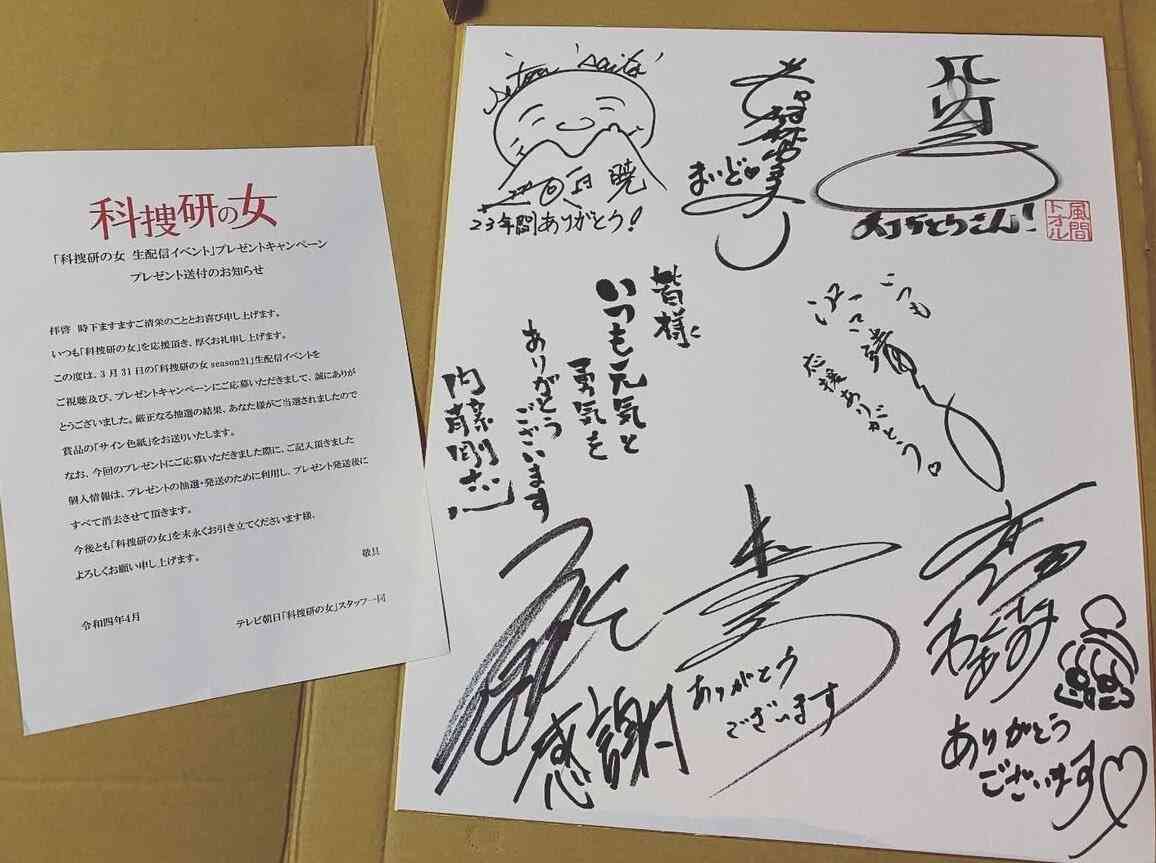 科捜研の女
「科捜研の女 生配信イベント」プレゼントキャンペーン
プレゼント送付のお知らせ
拝啓 時下ますますご清栄のこととお喜び申し上げます。
いつも「科捜研の女」を応援頂き、厚くお礼申し上げます。
この度は、3月31日の「科捜研の女 season21」生配信イベントを
ご視聴及び、プレゼントキャンペーンにご応募いただきまして、誠にありが
とうございました。厳正なる抽選の結果、あなた様がご当選されましたので
賞品の「サイン色紙」をお送りいたします。
なお、今回のプレゼントにご応募いただきました際に、ご記入頂きました
個人情報は、プレゼントの抽選・発送のために利用し、プレゼント発送後に
すべて消去させて頂きます。
今後とも「科捜研の女」を末永くお引き立てくださいます様、
よろしくお願い申し上げます。
敬具
令和四年4月
テレビ朝日「科捜研の女」スタッフ一同
暁
23年間ありがとう!
まいど
ありがとうさん!
風間
トオル
皆様に
いつも元気と
勇気を
ありがとう
ございます
内藤剛志
いつも
応援ありがとう。
感謝
ありがとう
ございます
ありがとう
ございます